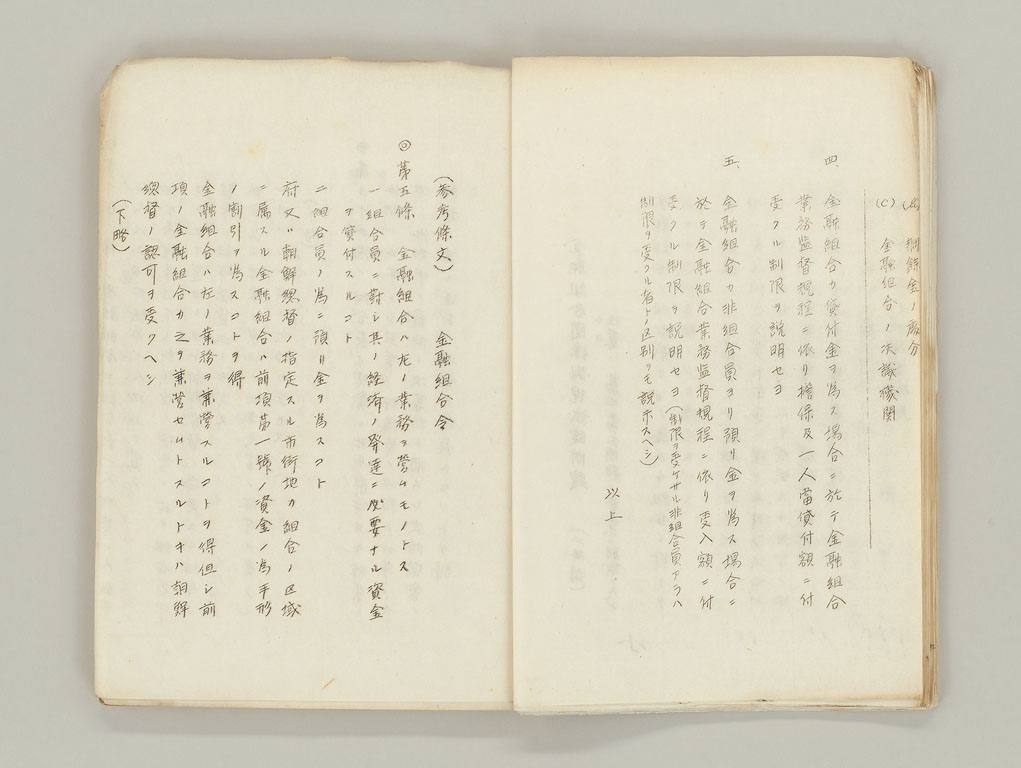 (B) 剰餘金ノ處分
(C) 金融組合ノ決議機関
四、金融組合カ貸付金ヲ為ス場合ニ於テ金融組合
業務監督規程ニ依リ擔保及一人當貸付額ニ付
受クル制限ヲ説明セヨ
五、金融組合カ非組合員ヨリ預リ金ヲ為ス場合ニ
於テ金融組合業務監督規程ニ依リ受入額ニ付
受クル制限ヲ説明セヨ(制限ヲ受ケサル非組合員アラハ
制限ヲ受クル者トノ区別ヲモ説示スヘシ)
以上
(参考條文) 金融組合令
◎第五條 金融組合ハ左ノ業務ヲ営ムモノトス
一 組合員ニ対シ其ノ経済ノ発達ニ必要ナル資金
ヲ貸付スルコト
二 組合員ノ為ニ預リ金ヲ為スコト
府又ハ朝鮮総督ノ指定スル市街地カ組合ノ区域
ニ属スル金融組合ハ前項第一號ノ資金ノ為手形
ノ割引ヲ為スコトヲ得
金融組合ハ左ノ業務ヲ兼営スルコトヲ得但シ前
項ノ金融組合カ之ヲ兼営セムトスルトキハ朝鮮
総督ノ認可ヲ受クヘシ
(下略)